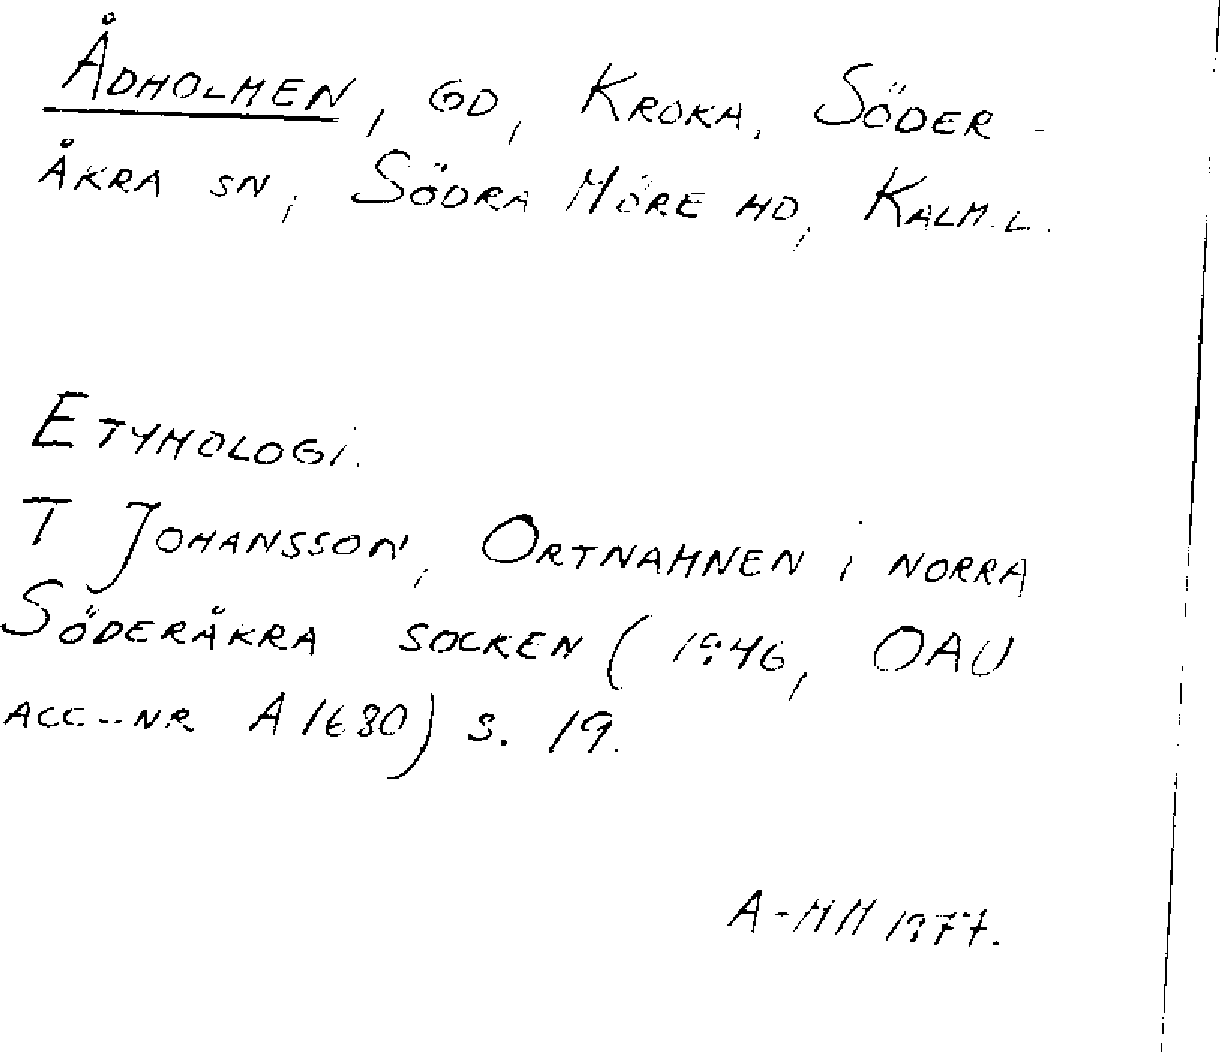 Ådholmen, gd, Kroka, Söder-
åkra sn, Södra Möre hd, Kalm.l.
Etymologi.
T Johansson, Ortnamnen i norra
Söderåkra socken (1946, OAU
acc-nr A 1680) s. 19.
A-MM 1977.